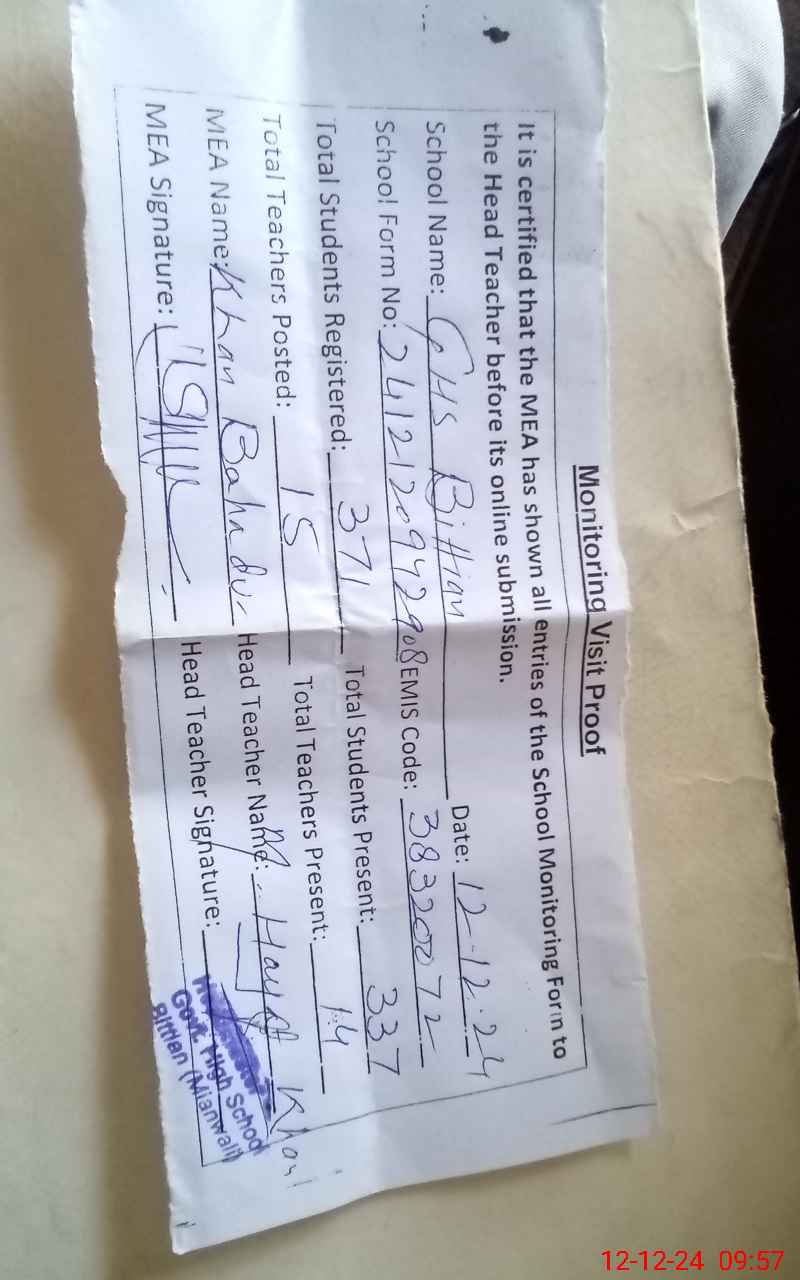 Monitoring Visit Proof
It is certified that the MEA has shown all entries of the School Monitoring Form to
the Head Teacher before its online submission.
School Name: GHS Bittian Date: 12-12-24
School Form No: 2412120942908 EMIS Code: 38320072
Total Students Registered: 371 Total Students Present: 337
Total Teachers Posted: 15 Total Teachers Present: 14
MEA Name: Khan Bahadur Head Teacher Name: M. Hayat Khan
MEA Signature: Head Teacher Signature:
Govt. High School
Bittian (Mianwali)
12-12-24 09:57